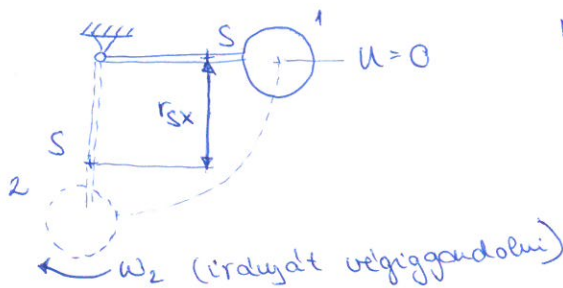 S 1
U = 0
rsx
S
2
ω₂ (irányát végiggondolni)